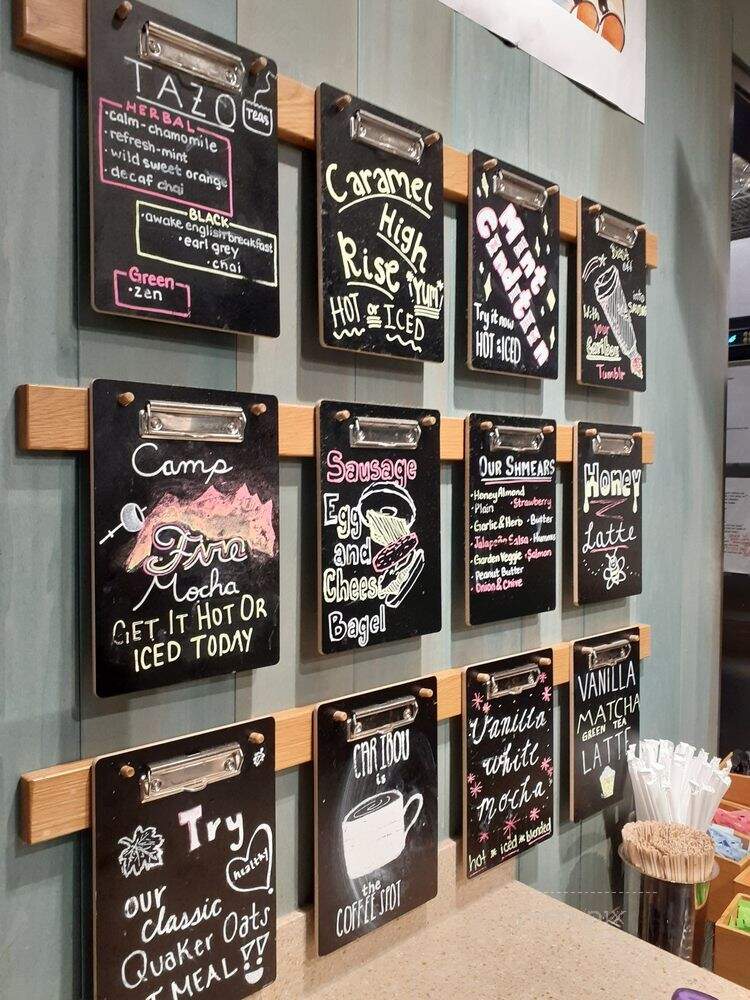 TAZO
Teas
HERBAL
• calm-chamomile
• refresh-mint
• wild sweet orange
• decaf chai
BLACK
• awake english breakfast
• earl grey
• chai
Green
• zen
Caramel
High
Rise
"YUM"
HOT or ICED
Mint
Condition
Try it now
HOT or ICED
off
With
your
Caribou
Tumblr
Camp
Fire
Mocha
GET IT HOT OR
ICED TODAY
Sausage
Egg
and
Cheese
Bagel
OUR SHMEARS
• Honey Almond
• Plain • Strawberry
• Garlic & Herb • Butter
• Jalapeño Salsa • Hummus
• Garden Veggie • Salmon
• Peanut Butter
• Onion & Chive
Honey
Latte
Try
healthy
our
classic
Quaker Oats
MEAL!!
CARIBOU
is
the
COFFEE SPOT
Vanilla
white
mocha
hot * iced * blended
VANILLA
MATCHA
GREEN TEA
LATTE